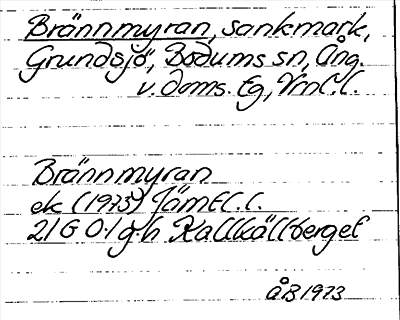 Brännmyran, sankmark,
Grundsjö, Bodums sn, Ång.
v. doms. Eg, Vrn l.l.
Brännmyran
ek (1973) Jämtl.l.
21G 0-1 g-h Kallkällberget
ÅB 1973